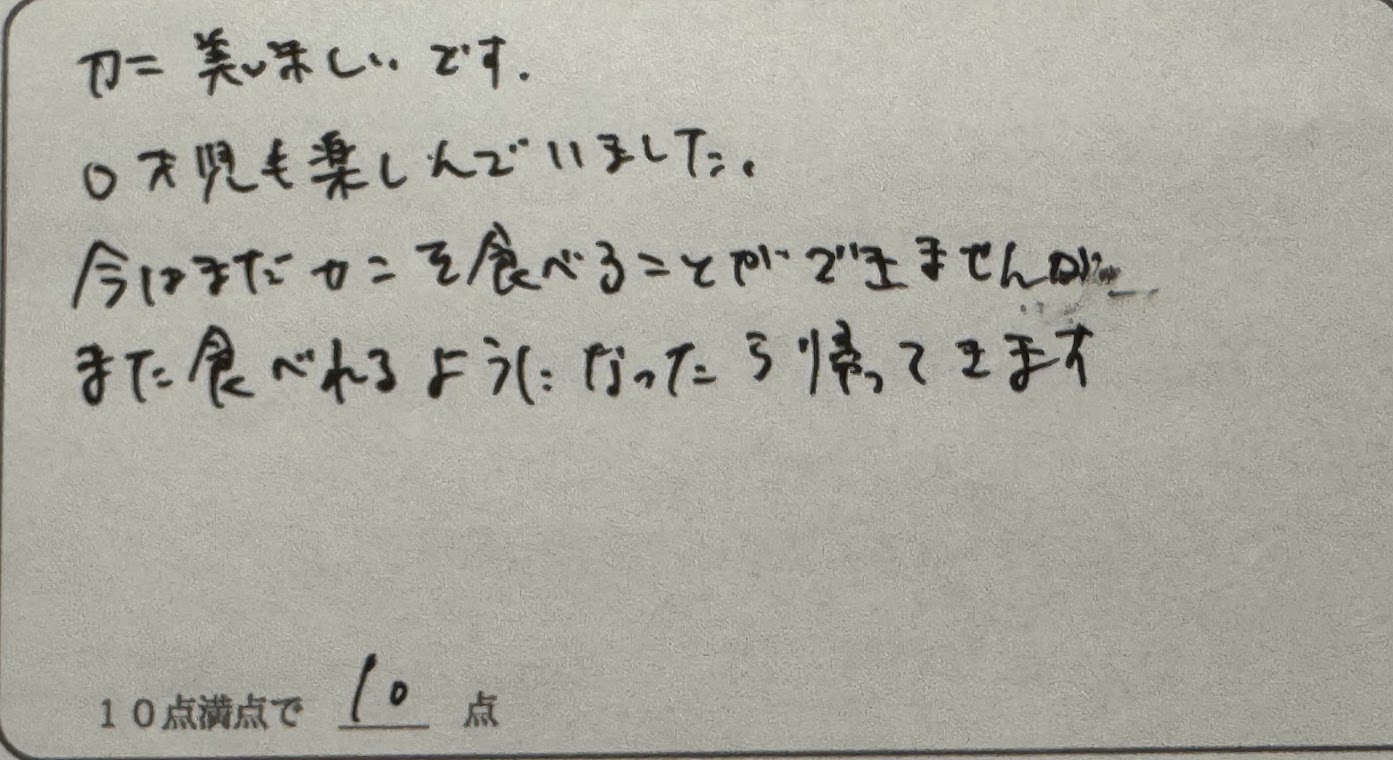 カニ美味しいです.
0才児も楽しんでいました。
今はまだカニを食べることができませんが
また食べれるようになったら帰ってきます
10点満点で 10 点